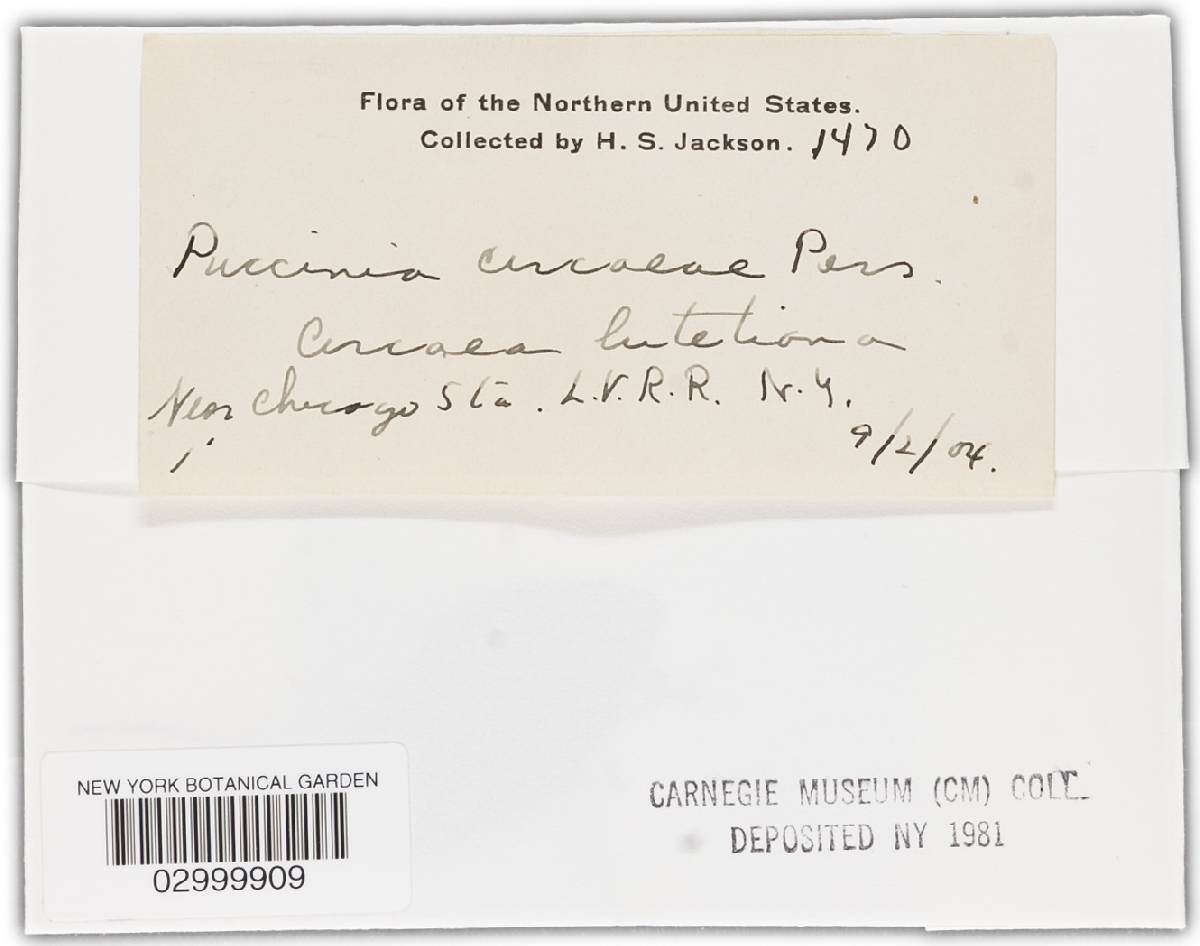 Flora of the Northern United States.
Collected by H. S. Jackson. 1470
Puccinia circaeae Pers.
Circaea lutetiana
Near Chicago Sta. L.V.R.R. N.Y.
9/2/04.
NEW YORK BOTANICAL GARDEN
02999909
CARNEGIE MUSEUM (CM) COLL.
DEPOSITED NY 1981